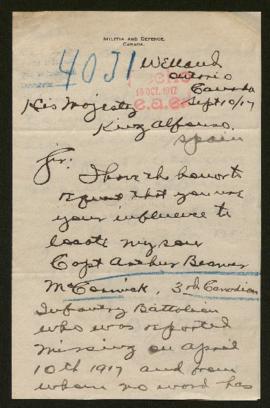 MILITIA AND DEFENCE.
CANADA.
4031
Welland
Ontario
15 OCT. 1917
Canada
Sept 10/17
His Majesty
King Alfonso.
Spain
Sir:
I have the honor to
request that you use
your influence to
locate my son
Capt Arthur Beaver
McCormick, 3rd Canadian
Infantry Battalion
who was reported
missing on April
10th 1917 and from
whom no word has